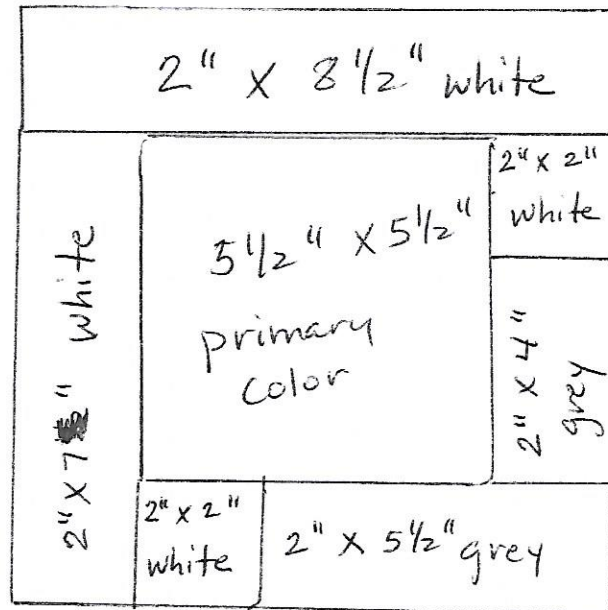 2" x 8 1/2" white
2" x 2"
white
5 1/2" x 5 1/2"
primary
color
2" x 7" white
2" x 4"
grey
2" x 2"
white
2" x 5 1/2" grey